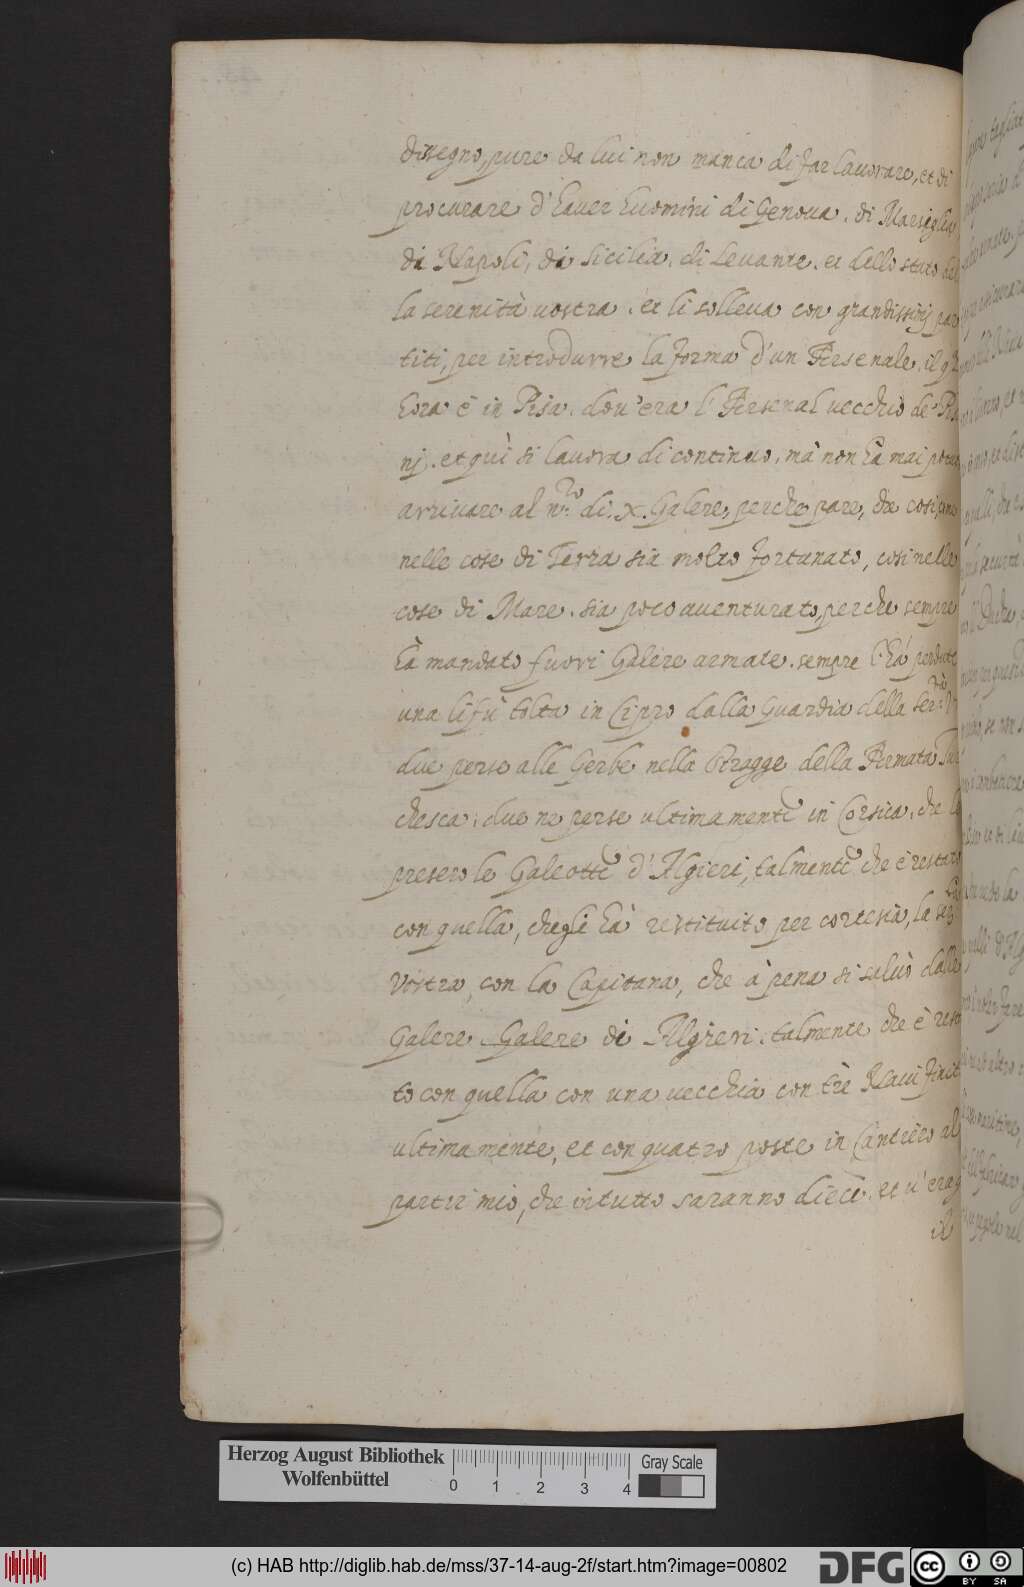 dissegno, pure da lui non manca di far lavorare, et di
procurare d'haver huomini di Genova. di Marseglia
di Napoli, di Sicilia. di Levante. et dello stato del
la serenità vostra. et li solleva con grandissimj par
titi, per introdurre la forma d'un Arsenale. il q
hora è in Pisa. dov'era l'Arsenal vecchio de' Pisa
nj. et quì si lavora di continuo. mà non hà mai potuto
arrivare al n.ro di .X. Galere, perche pare, che così, come
nelle cose di Terra sia molto fortunato, così nelle
cose di Mare. sia poco aventurato, perche sempre
hà mandato fuori Galere armate. sempre l'há perdute
una li fù tolta in Cipro dalla Guardia della Ser.tà V
due perse alle Gerbe nella Stragge della Armata Tur
chesca. due ne perse ultimamente in Corsica. che le
presero le Galeotte d'Algieri, talmente che è restato
con quella, che gli hà restituito per cortesia, la Ser.tà
Vostra, con la Capitana, che à pena si salvò dalle
Galere. Galere di Algieri. talmente che è resta
to con quella con una vecchia con trè Navi finite
ultimamente, et con quatro poste in Cantiero al
partir mio, che in tutto saranno diece. et v'era
il
Herzog August Bibliothek
Wolfenbüttel
0 1 2 3 4
Gray Scale
(c) HAB http://diglib.hab.de/mss/37-14-aug-2f/start.htm?image=00802
DFG
cc BY SA